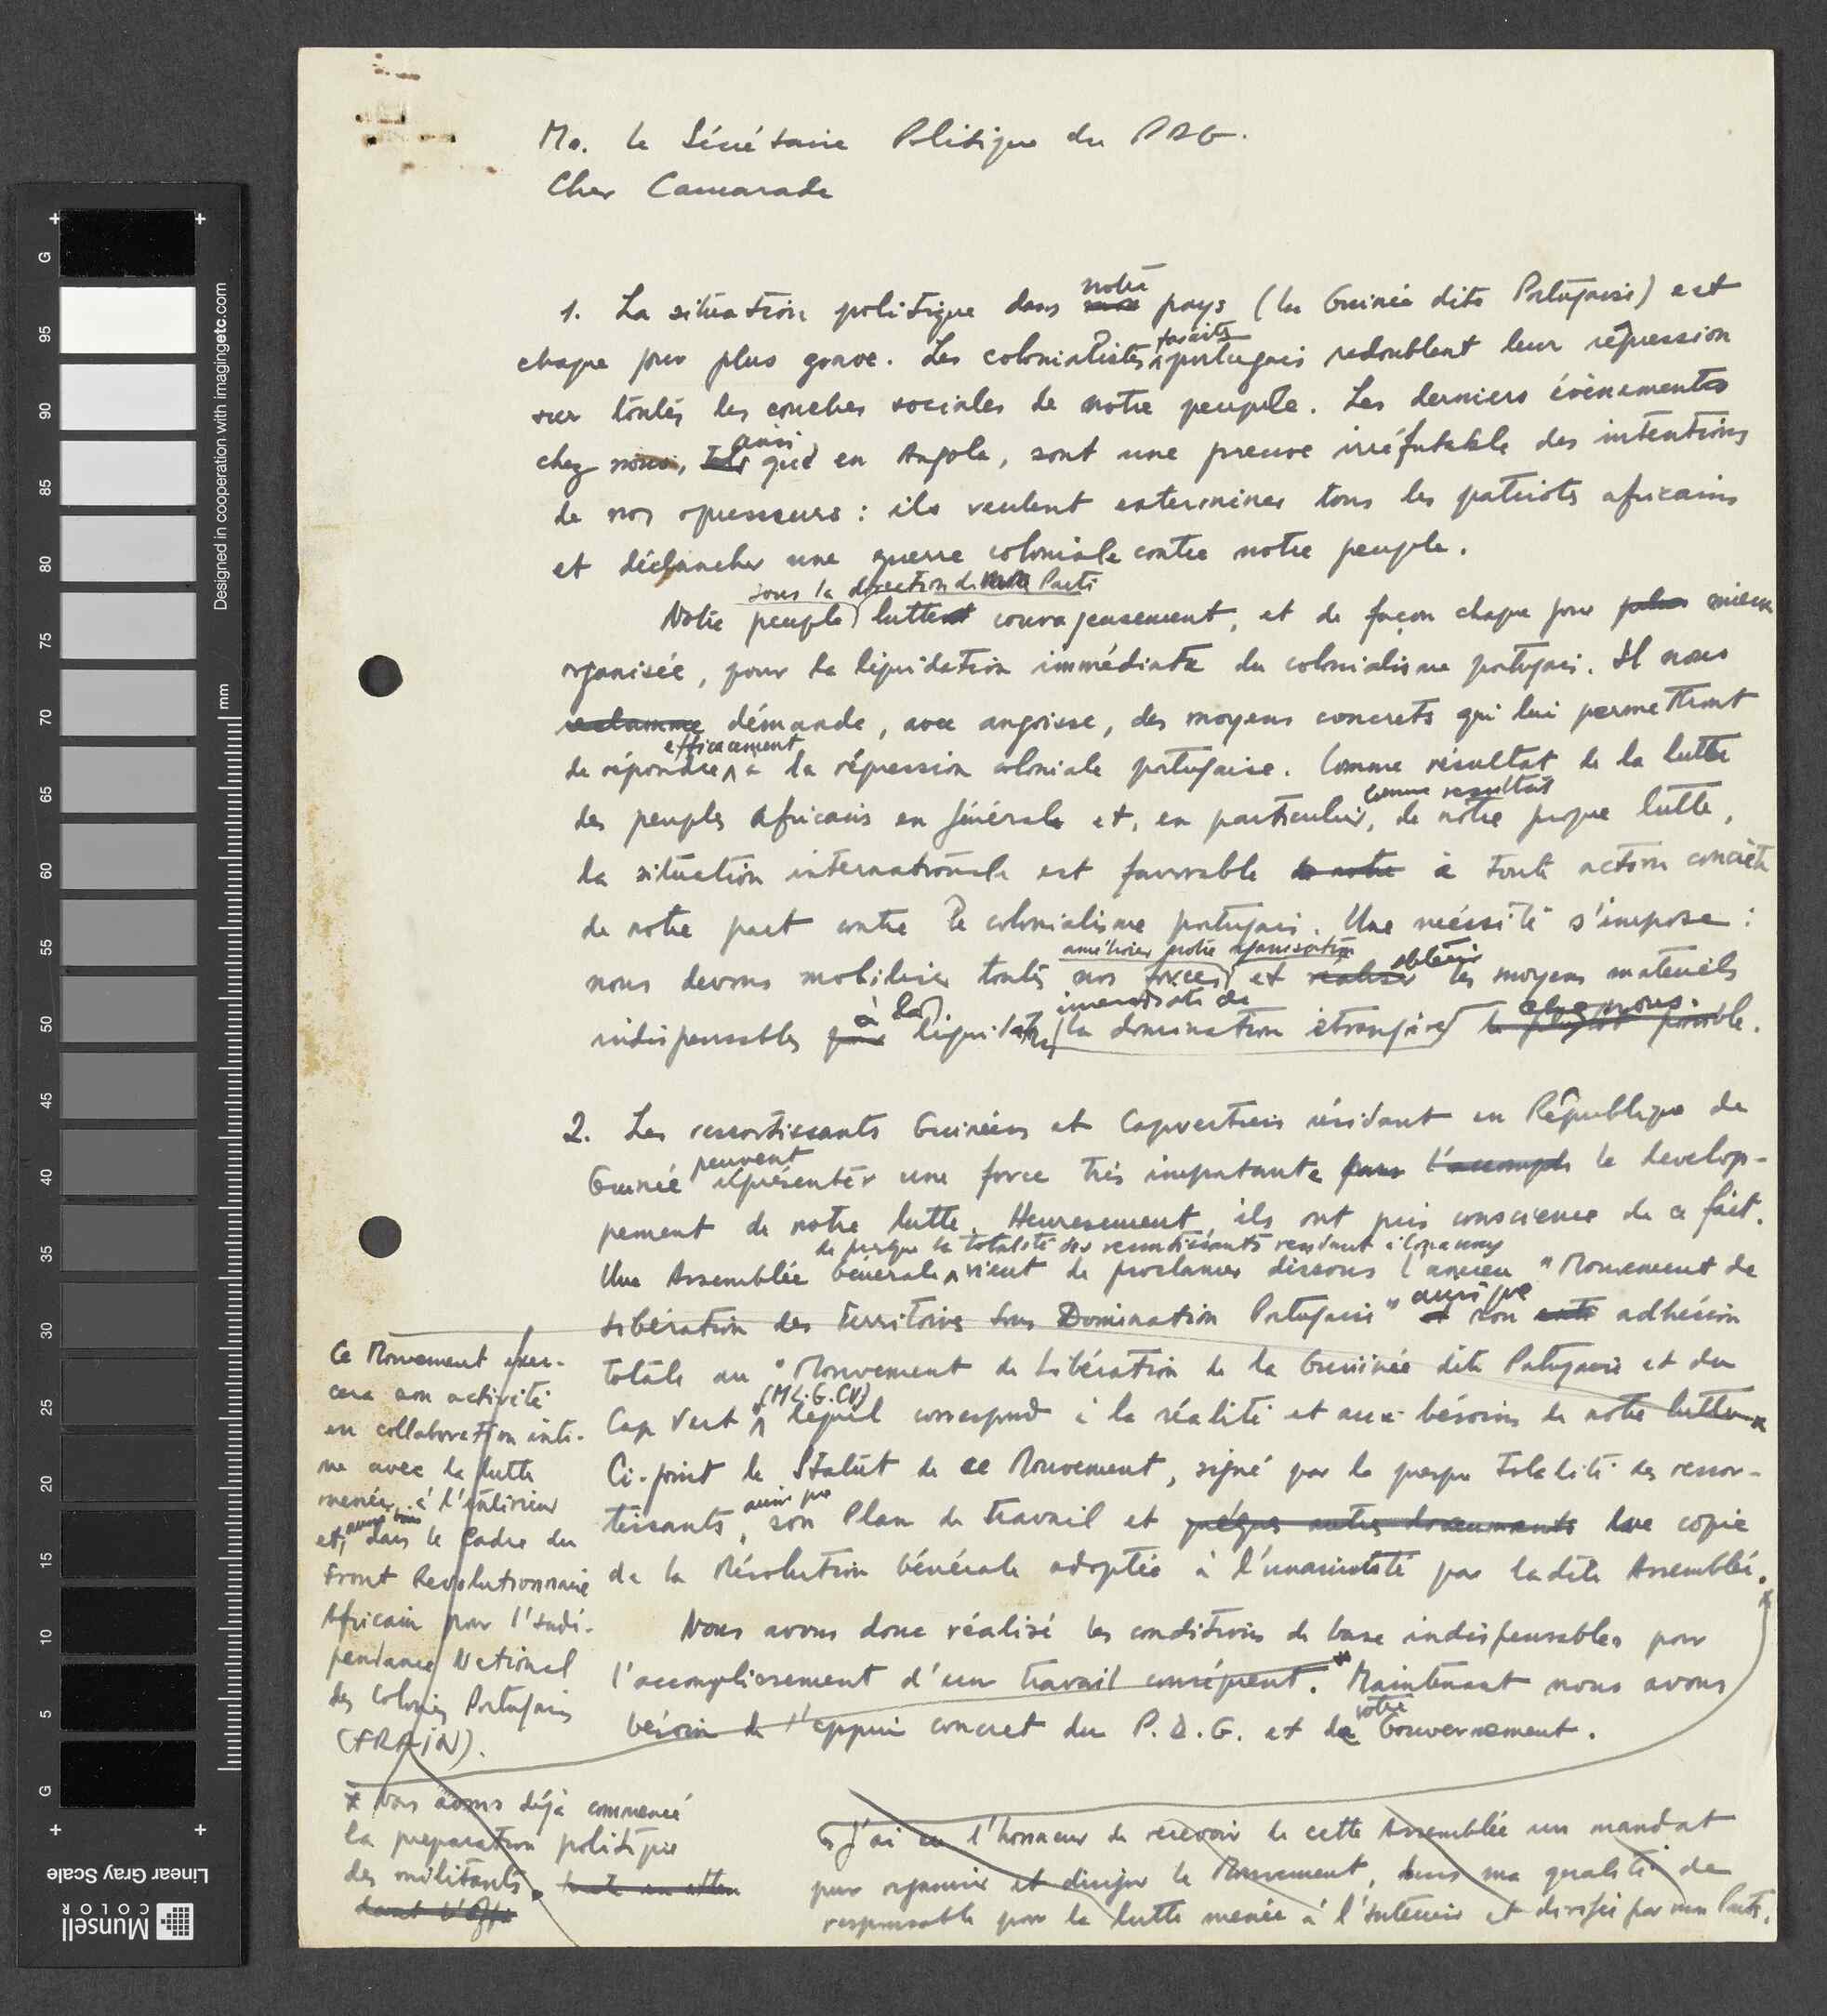 Mo. le Sécrétaire Politique du PDG.
Cher Camarade
notre
1. La situation politique dans pays (la Guinée dite Portugaise) est
fascistes
chaque jour plus grave. Les colonialistes portugais redoublent leur répression
sur toutes les couches sociales de notre peuple. Les derniers évènements
ainsi
chez nous, que en Angola, sont une preuve irréfutable des intentions
de nos opresseurs : ils veulent exterminer tous les patriotes africains
et déclancher une guerre coloniale contre notre peuple.
sous la direction de notre Parti
Notre peuple lutte courageusement, et de façon chaque jour plus mieux
organisée, pour la liquidation immédiate du colonialisme portugais. Il nous
reclamme démande, avec angoisse, des moyens concrets qui lui permettront
efficacement
de répondre à la répression coloniale portugaise. Comme résultat de la lutte
comme resultat
des peuples Africains en général et, en particulier, de notre propre lutte,
la situation internationale est favorable de notre à toute action concrète
de notre part contre le colonialisme portugais. Une nécéssité s'impose :
améliorer notre organisation
obtenir
nous devons mobiliser toutes nos forces et realiser les moyens materiels
à la
immédiate de
chez nous.
indispensables pour liquidation la domination étrangère le plus tôt possible.
2. Les ressortissants Guinéens et Capverdiens résidant en République de
peuvent
Guinée représenter une force très importante pour l'accompli le develop-
pement de notre lutte. Heuresement, ils ont pris conscience de ce fait.
de presque la totalité des ressortissants residant à Conacry
Une Assemblée Générale vient de proclamer dissous l'ancien "Mouvement de
ainsi que
Libération des Territoires sous Domination Portugaise" et son adhésion
totale au "Mouvement de Libération de la Guiinée dite Portugaise et du
(M.L.G.CV)
Cap Vert lequel correspond à la réalité et aux bésoins de notre lutte
Ci-joint le Statut de ce Mouvement, signé par la presque totalité des ressor-
ainsi que
tissants, son Plan de travail et quelques autres documments copie
de la Résolution Générale adoptée à l'unanimité par ladite Assemblée.
Nous avons donc réalisé les conditions de base indispensables pour
l'accomplissement d'un travail conséquent.* Maintenant nous avons
votre
bésoin de l'appui concret du P.D.G. et de Gouvernement.
Ce Mouvement exer-
cera son activité
en collaboration inti-
me avec la lutte
menée à l'intérieur
et, aussi bien dans le Cadre du
Front Revolutionnaire
Africain pour l'indé-
pendance National
des Colonies Portugaises
(FRAIN).
* Nous avons déjà commencé
la preparation politique
des militants. toute en atten
dant l'app
J'ai eu l'honneur de recevoir de cette Assemblée un mandat
pour organiser et diriger le Mouvement, dans ma qualité de
responsable pour la lutte menée à l'intérieur et dirigée par mon Parti.
Designed in cooperation with imagingetc.com
mm
G
95
90
85
80
75
70
65
60
55
50
45
40
35
30
25
20
15
10
5
G
Linear Gray Scale
Munsell
COLOR